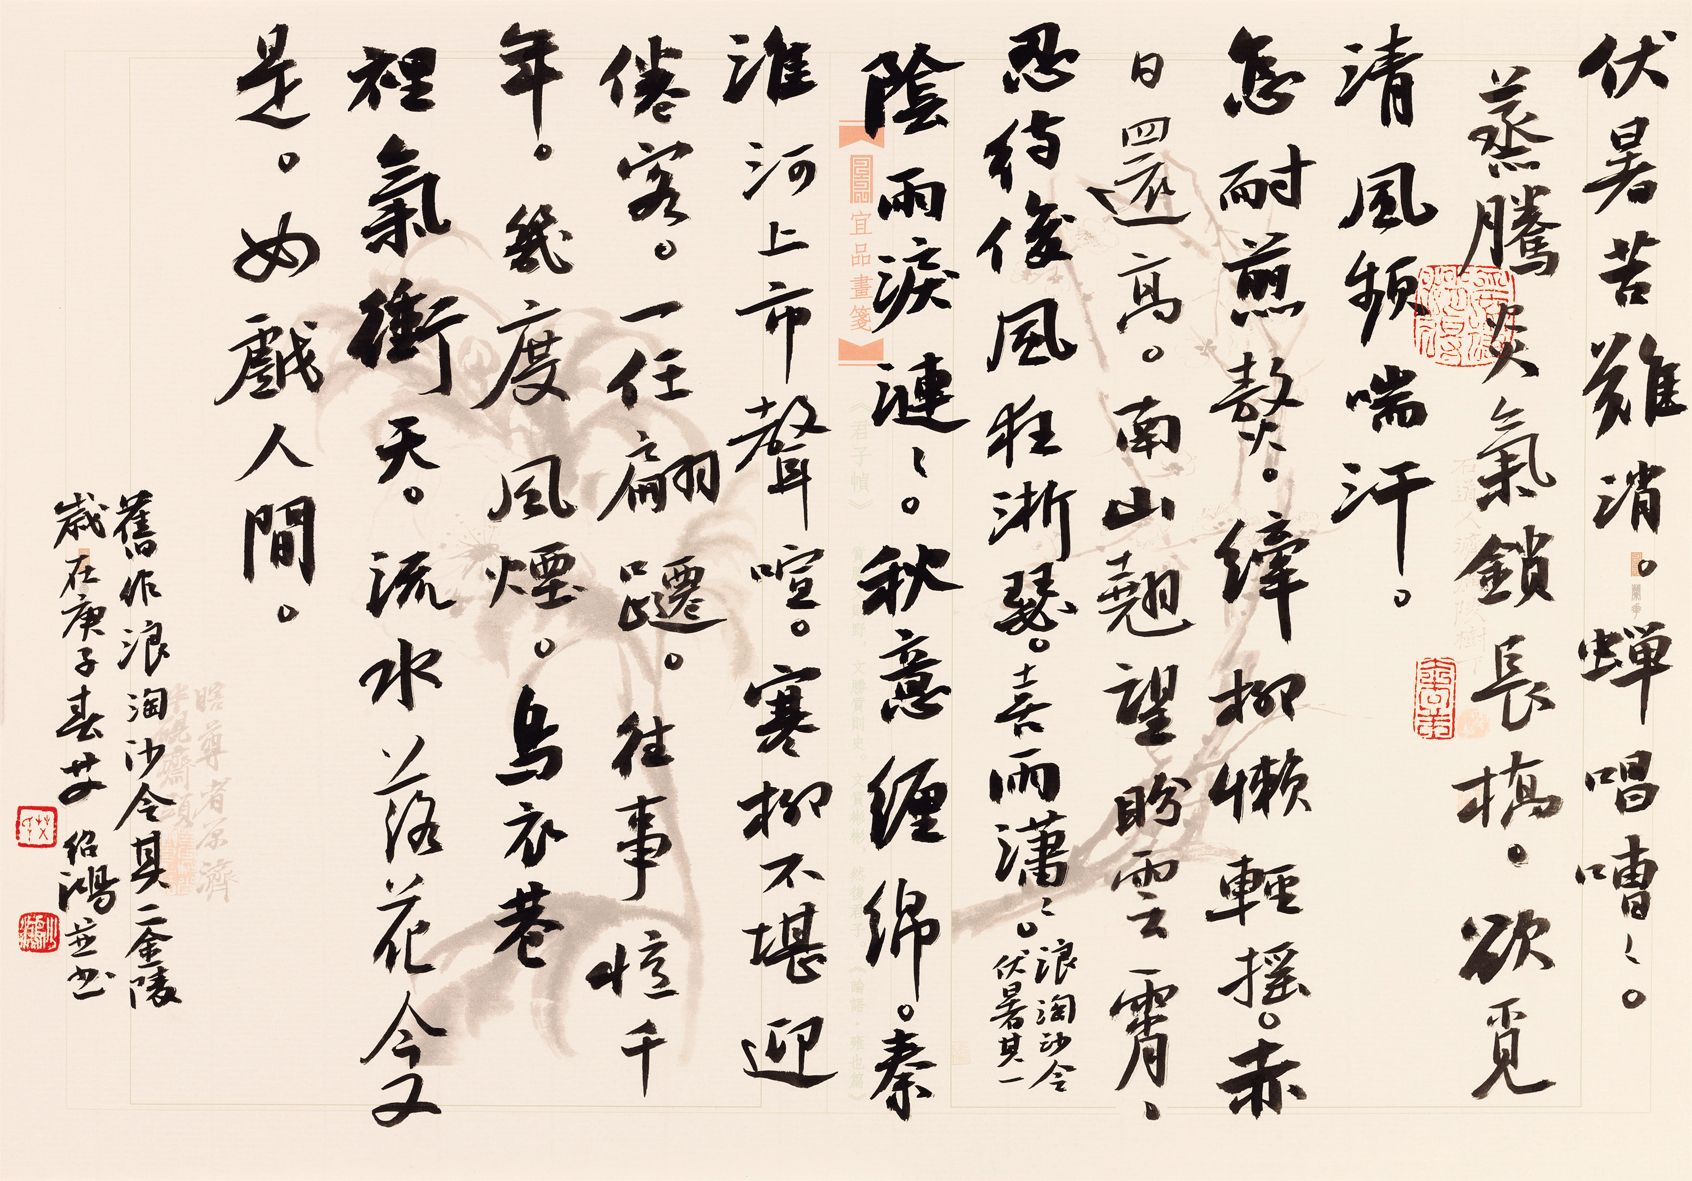 伏暑苦難消。蟬唱嘈〻。
蒸騰炎氣鎖長橋。欲覓
清風頻喘汗。
怎耐煎熬。纖柳懶輕搖。赤
日還高。南山翹望盼雲霄〻
忍待後風狂淅瑟。喜雨瀟〻。
浪淘沙令
伏暑其一
陰雨淚漣〻。秋意纏綿。秦
淮河上市聲喧。寒柳不堪迎
倦客。一任翩躚。往事憶千
年。幾度風煙。烏衣巷
裡氣衝天。流水落花今又
是。如戲人間。
舊作浪淘沙令其二金陵
歲在庚子春艾紹鴻並书
宜品畫箋
《君子幀》